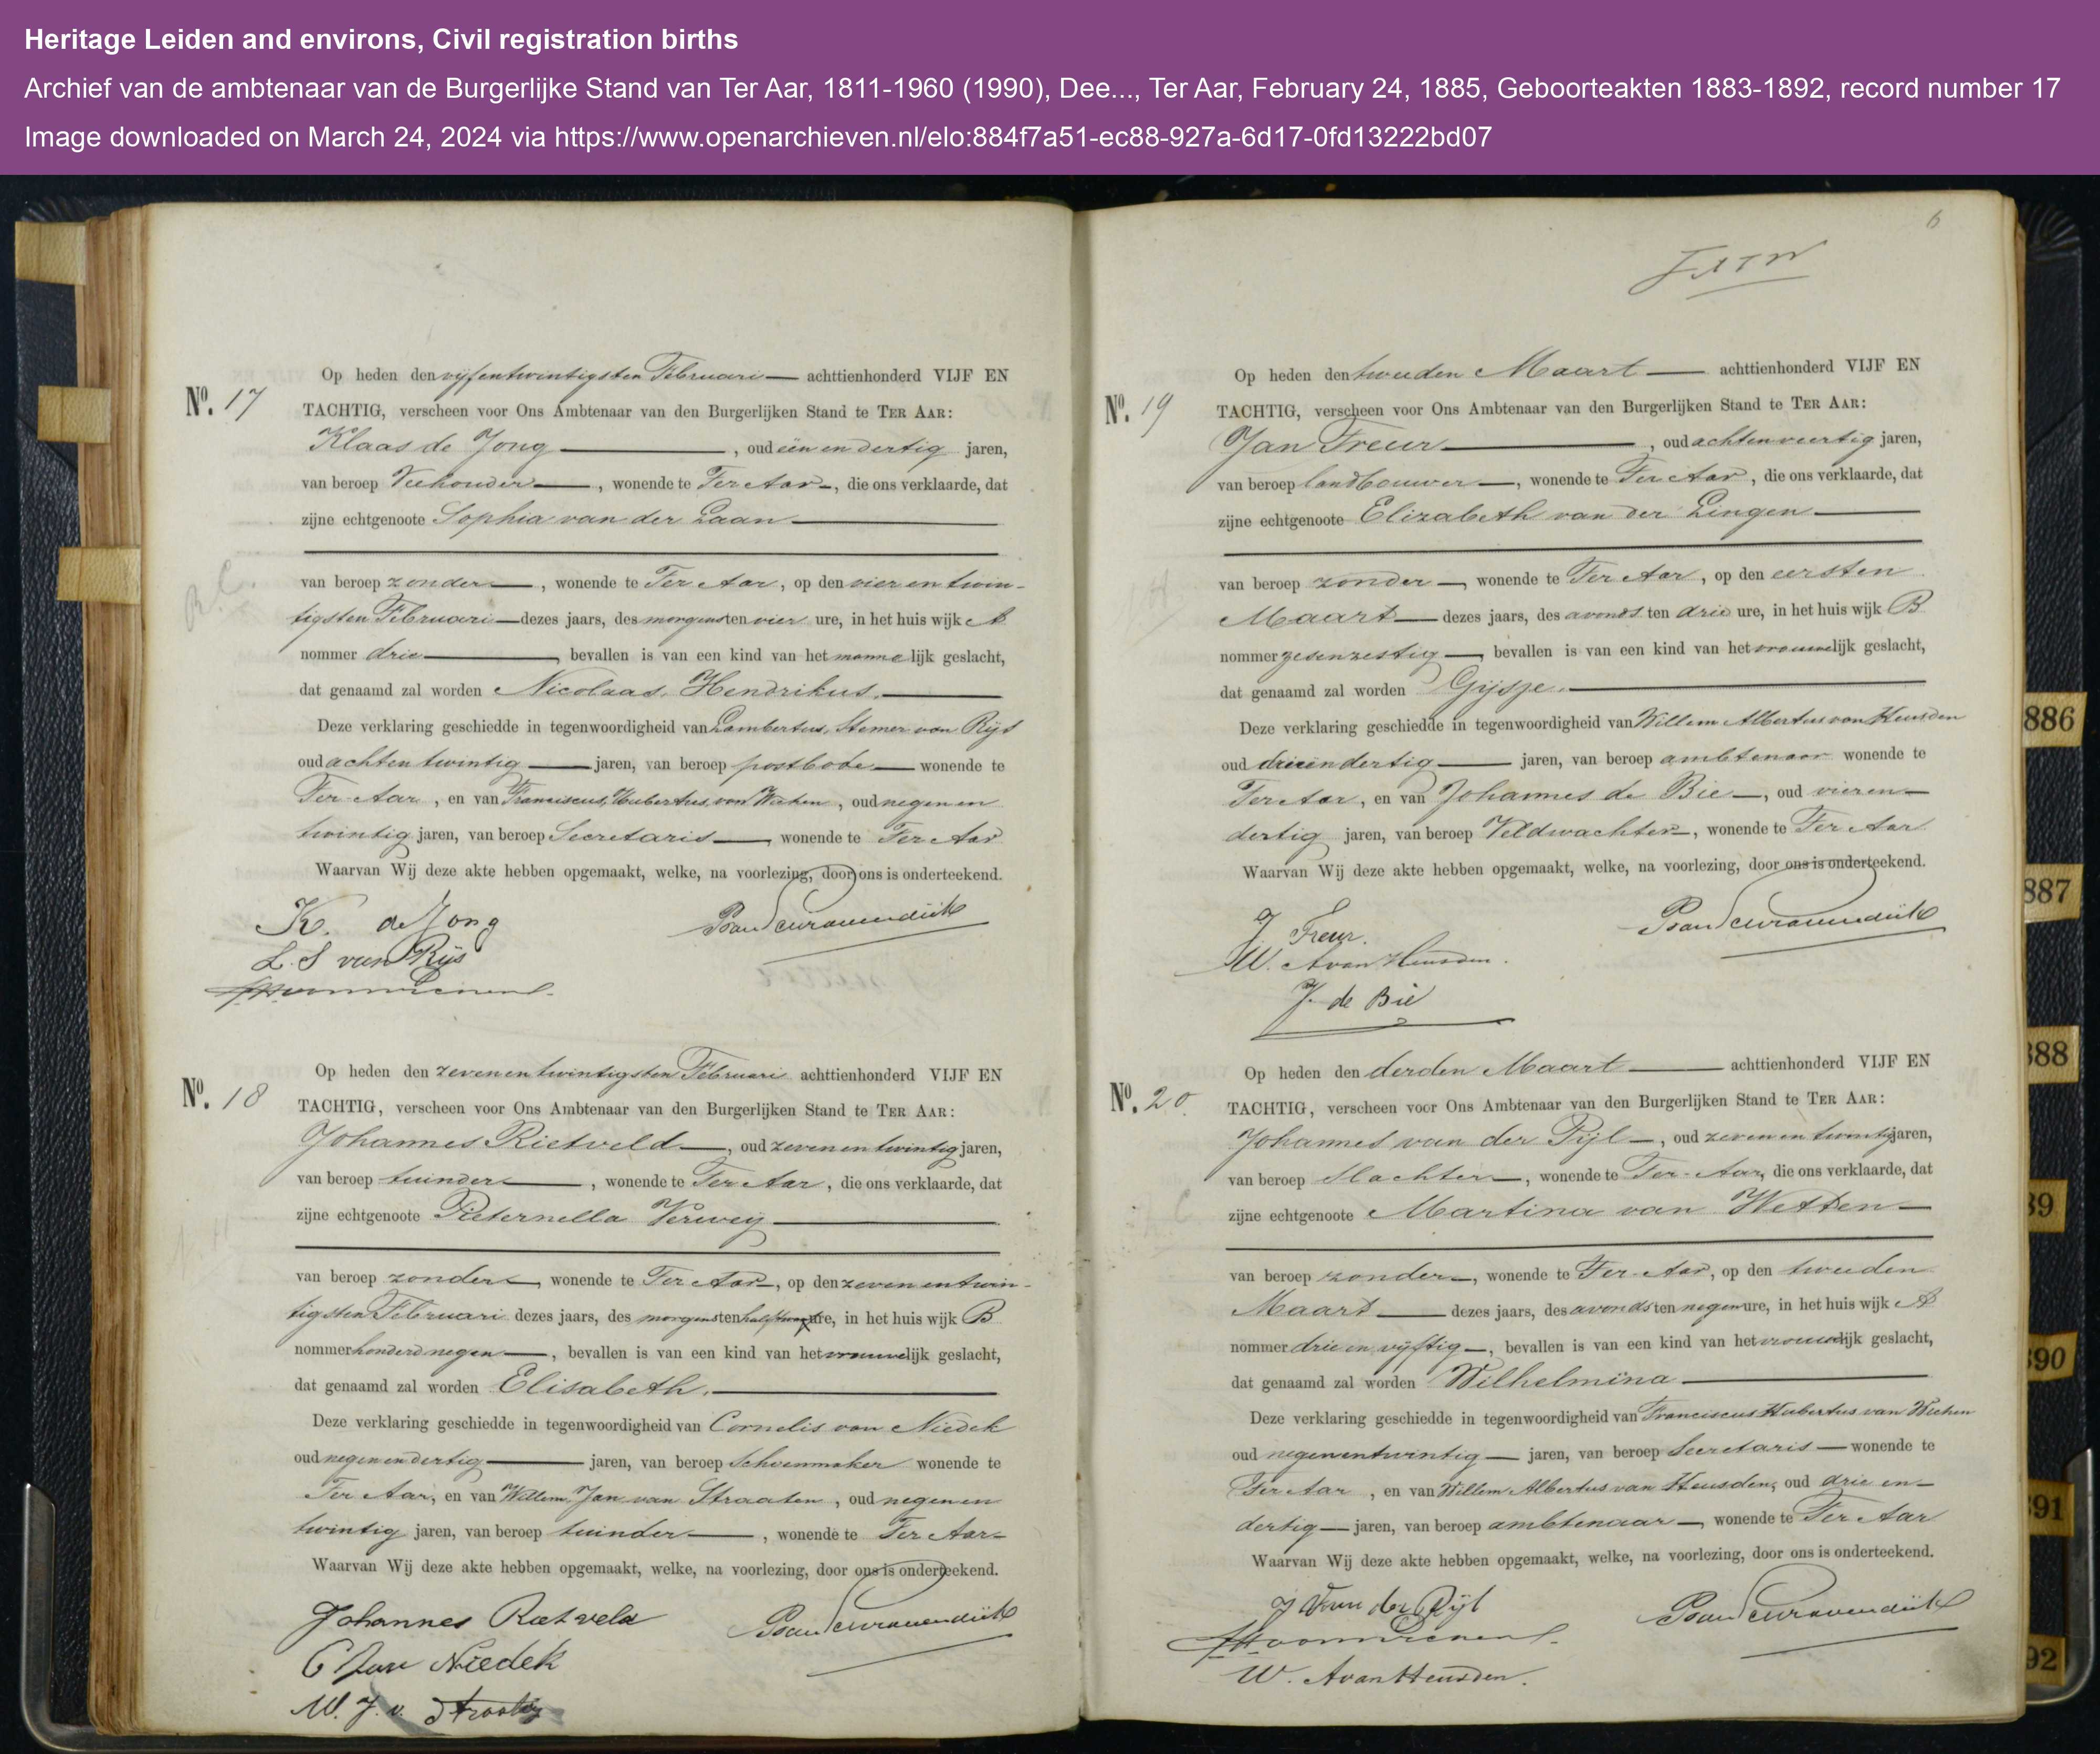 Heritage Leiden and environs, Civil registration births
Archief van de ambtenaar van de Burgerlijke Stand van Ter Aar, 1811-1960 (1990), Dee..., Ter Aar, February 24, 1885, Geboorteakten 1883-1892, record number 17
Image downloaded on March 24, 2024 via https://www.openarchieven.nl/elo:884f7a51-ec88-927a-6d17-0fd13222bd07
Nº. 17
Op heden den vijfentwintigsten Februari — achttienhonderd VIJF EN
TACHTIG, verscheen voor Ons Ambtenaar van den Burgerlijken Stand te TER AAR:
Klaas de Jong —, oud één en dertig jaren,
van beroep Veehouder —, wonende te Ter Aar —, die ons verklaarde, dat
zijne echtgenoote Sophia van der Laan —
van beroep zonder —, wonende te Ter Aar, op den vier en twin-
tigsten Februari — dezes jaars, des morgens ten vier ure, in het huis wijk A
nommer drie —, bevallen is van een kind van het mannelijk geslacht,
dat genaamd zal worden Nicolaas, Hendrikus. —
Deze verklaring geschiedde in tegenwoordigheid van Lambertus, Stemer van Rijs
oud achtentwintig — jaren, van beroep postbode — wonende te
Ter-Aar, en van Franciscus, Hubertus, van Wichen, oud negen en
twintig jaren, van beroep Secretaris —, wonende te Ter Aar
Waarvan Wij deze akte hebben opgemaakt, welke, na voorlezing, door ons is onderteekend.
K. de Jong
L. S van Rijs
Nº. 18
Op heden den zevenentwintigsten Februari achttienhonderd VIJF EN
TACHTIG, verscheen voor Ons Ambtenaar van den Burgerlijken Stand te TER AAR:
Johannes Rietveld —, oud zevenentwintig jaren,
van beroep tuinder —, wonende te Ter Aar, die ons verklaarde, dat
zijne echtgenoote Pieternella Verweij —
van beroep zonder —, wonende te Ter Aar —, op den zevenentwin-
tigsten Februari dezes jaars, des morgens ten half twee ure, in het huis wijk B
nommer honderd negen —, bevallen is van een kind van het vrouwelijk geslacht,
dat genaamd zal worden Elisabeth. —
Deze verklaring geschiedde in tegenwoordigheid van Cornelis van Niedek
oud negenendertig — jaren, van beroep Schoenmaker wonende te
Ter Aar, en van Willem, Jan van Straaten, oud negenen
twintig jaren, van beroep tuinder —, wonende te Ter Aar —
Waarvan Wij deze akte hebben opgemaakt, welke, na voorlezing, door ons is onderteekend.
Johannes Rietveld
C Van Niedek
W. J. v. Straaten
6
Nº. 19
Op heden den tweeden Maart — achttienhonderd VIJF EN
TACHTIG, verscheen voor Ons Ambtenaar van den Burgerlijken Stand te TER AAR:
Jan Treur —, oud achtenveertig jaren,
van beroep landbouwer —, wonende te Ter Aar, die ons verklaarde, dat
zijne echtgenoote Elizabeth van der Lingen —
van beroep zonder —, wonende te Ter Aar, op den eersten
Maart — dezes jaars, des avonds ten drie ure, in het huis wijk B
nommer zesenzestig —, bevallen is van een kind van het vrouwelijk geslacht,
dat genaamd zal worden Gijsje. —
Deze verklaring geschiedde in tegenwoordigheid van Willem Albertus van Heusden
oud drieëndertig — jaren, van beroep ambtenaar wonende te
Ter Aar, en van Johannes de Bie —, oud vieren-
dertig jaren, van beroep Veldwachter —, wonende te Ter Aar
Waarvan Wij deze akte hebben opgemaakt, welke, na voorlezing, door ons is onderteekend.
J Treur.
W. A van Heusden.
J. de Bie
Nº. 20
Op heden den derden Maart — achttienhonderd VIJF EN
TACHTIG, verscheen voor Ons Ambtenaar van den Burgerlijken Stand te TER AAR:
Johannes van der Pijl —, oud zevenentwintig jaren,
van beroep Slachter —, wonende te Ter-Aar, die ons verklaarde, dat
zijne echtgenoote Martina van Wetten —
van beroep zonder —, wonende te Ter-Aar, op den tweeden
Maart — dezes jaars, des avonds ten negen ure, in het huis wijk A
nommer drie en vijftig —, bevallen is van een kind van het vrouwelijk geslacht,
dat genaamd zal worden Wilhelmina —
Deze verklaring geschiedde in tegenwoordigheid van Franciscus Hubertus van Wichen
oud negenentwintig — jaren, van beroep Secretaris — wonende te
Ter Aar, en van Willem Albertus van Heusden, oud drie en-
dertig — jaren, van beroep ambtenaar —, wonende te Ter Aar
Waarvan Wij deze akte hebben opgemaakt, welke, na voorlezing, door ons is onderteekend.
J Van der Pijl
W. A van Heusden.
886
887
888
89
890
891
92